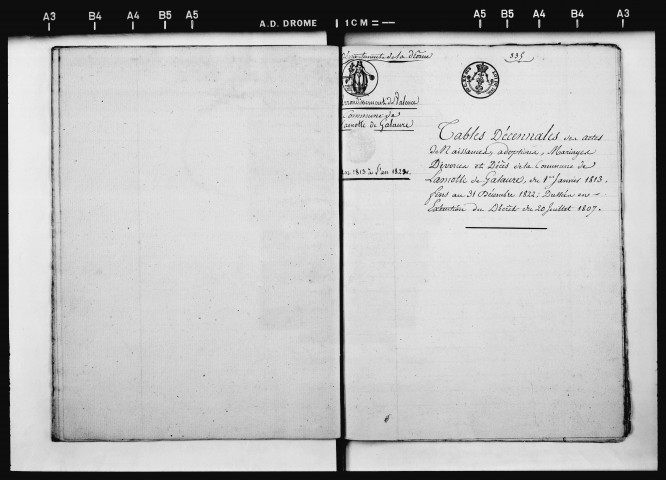 A3 B4 A4 B5 A5 A.D. DROME 1 CM A5 B5 A4 B4 A3
Département de la Drôme
arrondissement de Valence
Commune de
Lamotte de Galaure
1813 à l'an 1823.
335
Tables Décennales des actes
de Naissances, adoptions, Mariages
Divorces et Décès de la Commune de
Lamotte de Galaure, du 1er Janvier 1813.
au 31 Décembre 1822; en
Exécution du Décret du 20 Juillet 1807.